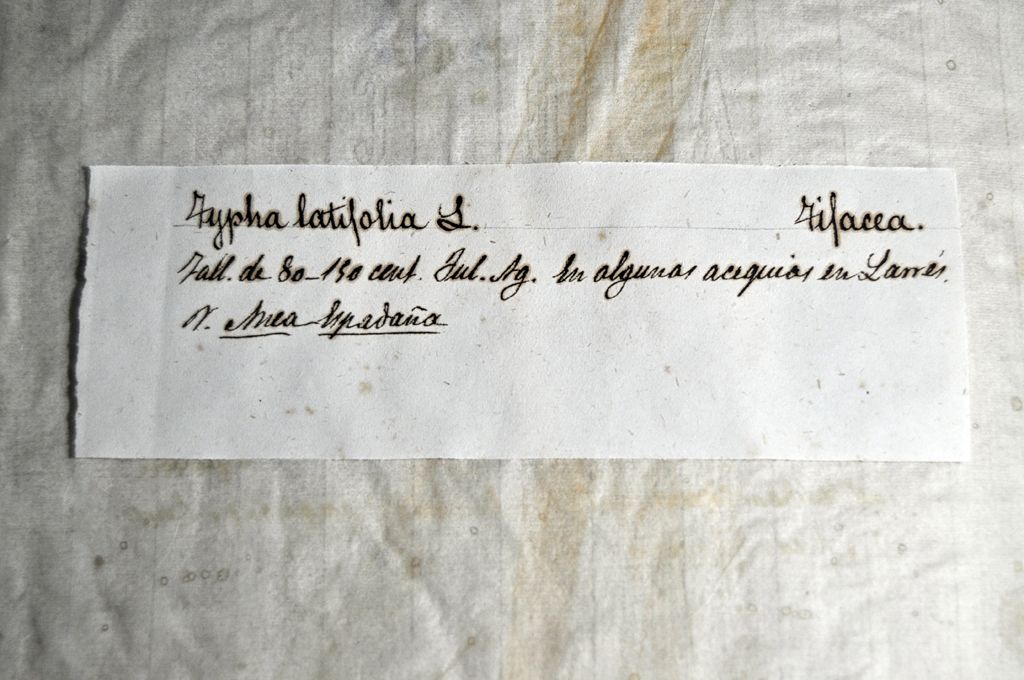 Typha latifolia L. Tifacea.
Tall. de 80-150 cent. Jul. Ag. En algunas acequias en Larrés.
V. Anea Espadaña